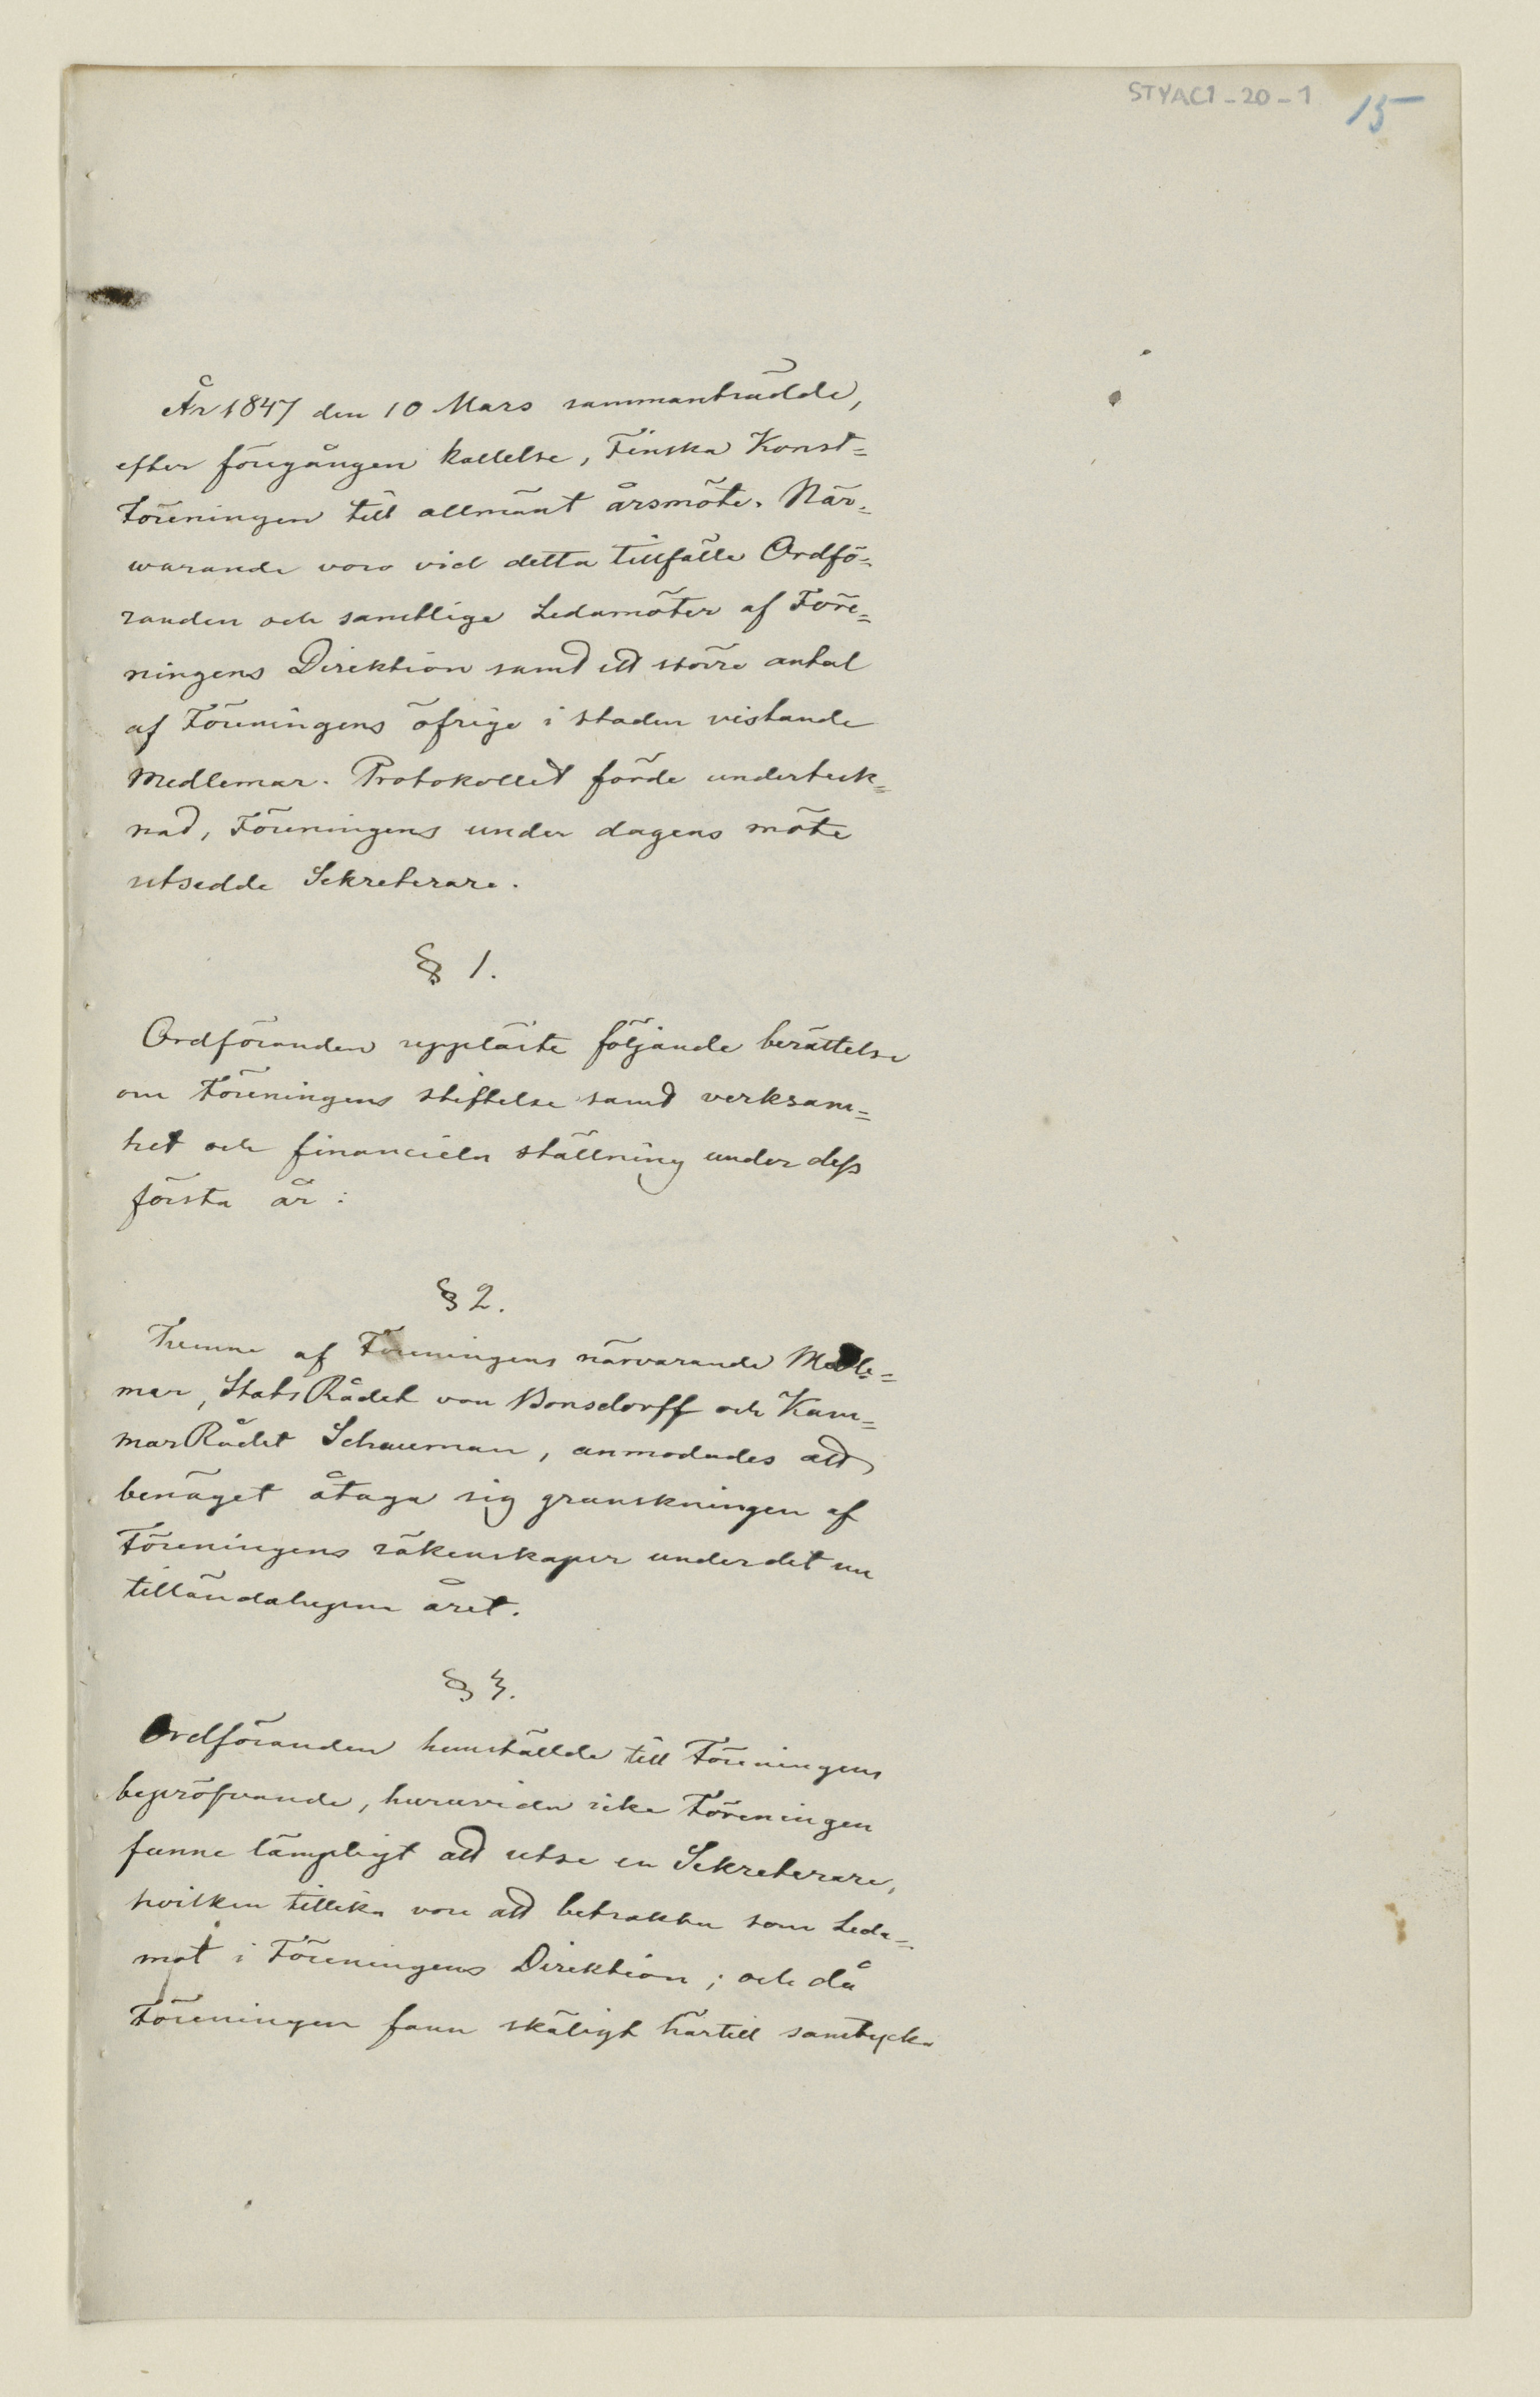 STYAC1-20-1 15
År 1847 den 10 Mars sammanträdde,
efter föregången kallelse, Finska Konst=
Föreningen till allmänt årsmöte. När=
warande voro vid detta tillfälle Ordfö=
randen och samtlige Ledamöter af Före=
ningens Direktion samt ett större antal
af Föreningens öfrige i staden vistande
Medlemar. Protokollet förde underteck=
nad, Föreningens under dagens möte
utsedde Sekreterare.
§ 1.
Ordföranden uppläste följande berättelse
om Föreningens stiftelse samt verksam=
het och financiela ställning under dess
första år:
§ 2.
Tvenne af Föreningens närvarande Medle=
mar, StatsRådet von Bonsdorff och Kam=
marRådet Schauman, anmodades att
benäget åtaga sig granskningen af
Föreningens räkenskaper under det nu
tilländalupna året.
§ 3.
Ordföranden hemställde till Föreningens
bepröfvande, huruvida icke Föreningen
funne lämpligt att utse en Sekreterare,
hvilken tillika vore att betrakta som Leda=
mot i Föreningens Direktion; och då
Föreningen fann skäligt härtill samtycka